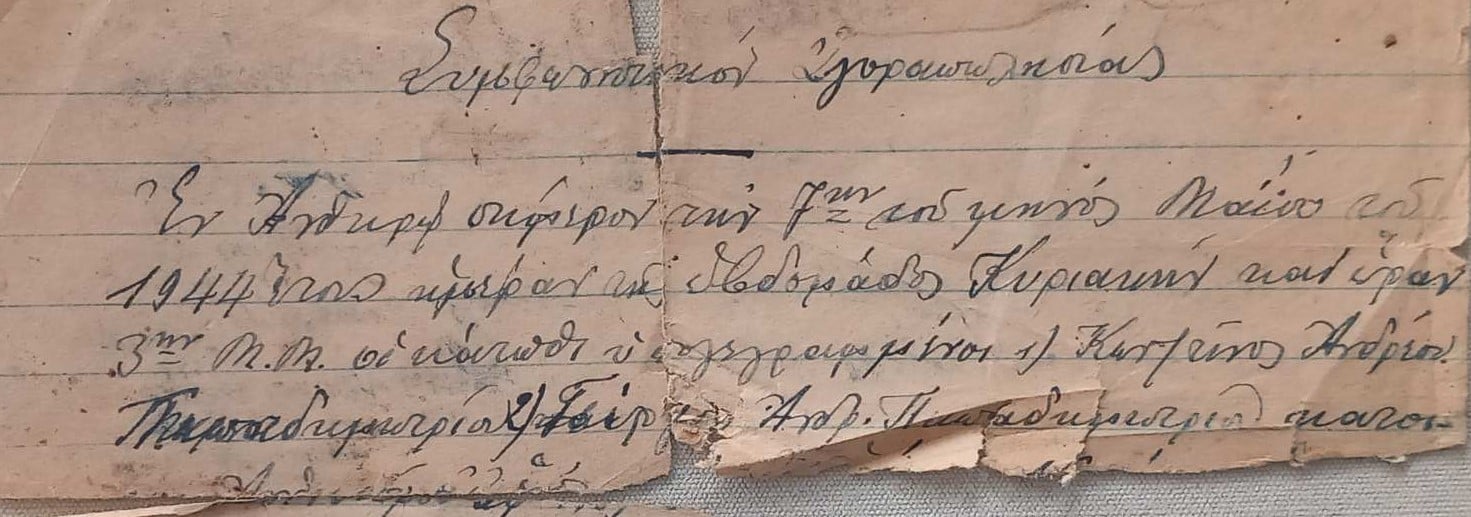 Συμφωνητικόν Ἀγοραπωλησίας
Ἐν σήμερον τήν 7ην τοῦ μηνός Μαΐου τοῦ
1944 ἔτους ἡμέραν τῆς ἑβδομάδος Κυριακήν καί ὥραν
3ην Μ.Μ. οἱ κάτωθι ὑπογεγραμμένοι 1) Κων/τίνος Ἀνδρέου
Παπαδημητρίου 2) Ἀνδ. Παπαδημητρίου κατοι-